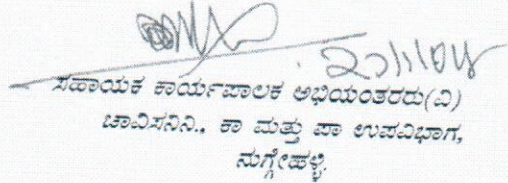 ಸಹಾಯಕ ಕಾರ್ಯಪಾಲಕ ಅಭಿಯಂತರರು(ವಿ)
ಚಾವಿಸನಿನಿ., ಕಾ ಮತ್ತು ಪಾ ಉಪವಿಭಾಗ,
ನುಗ್ಗೇಹಳ್ಳಿ.